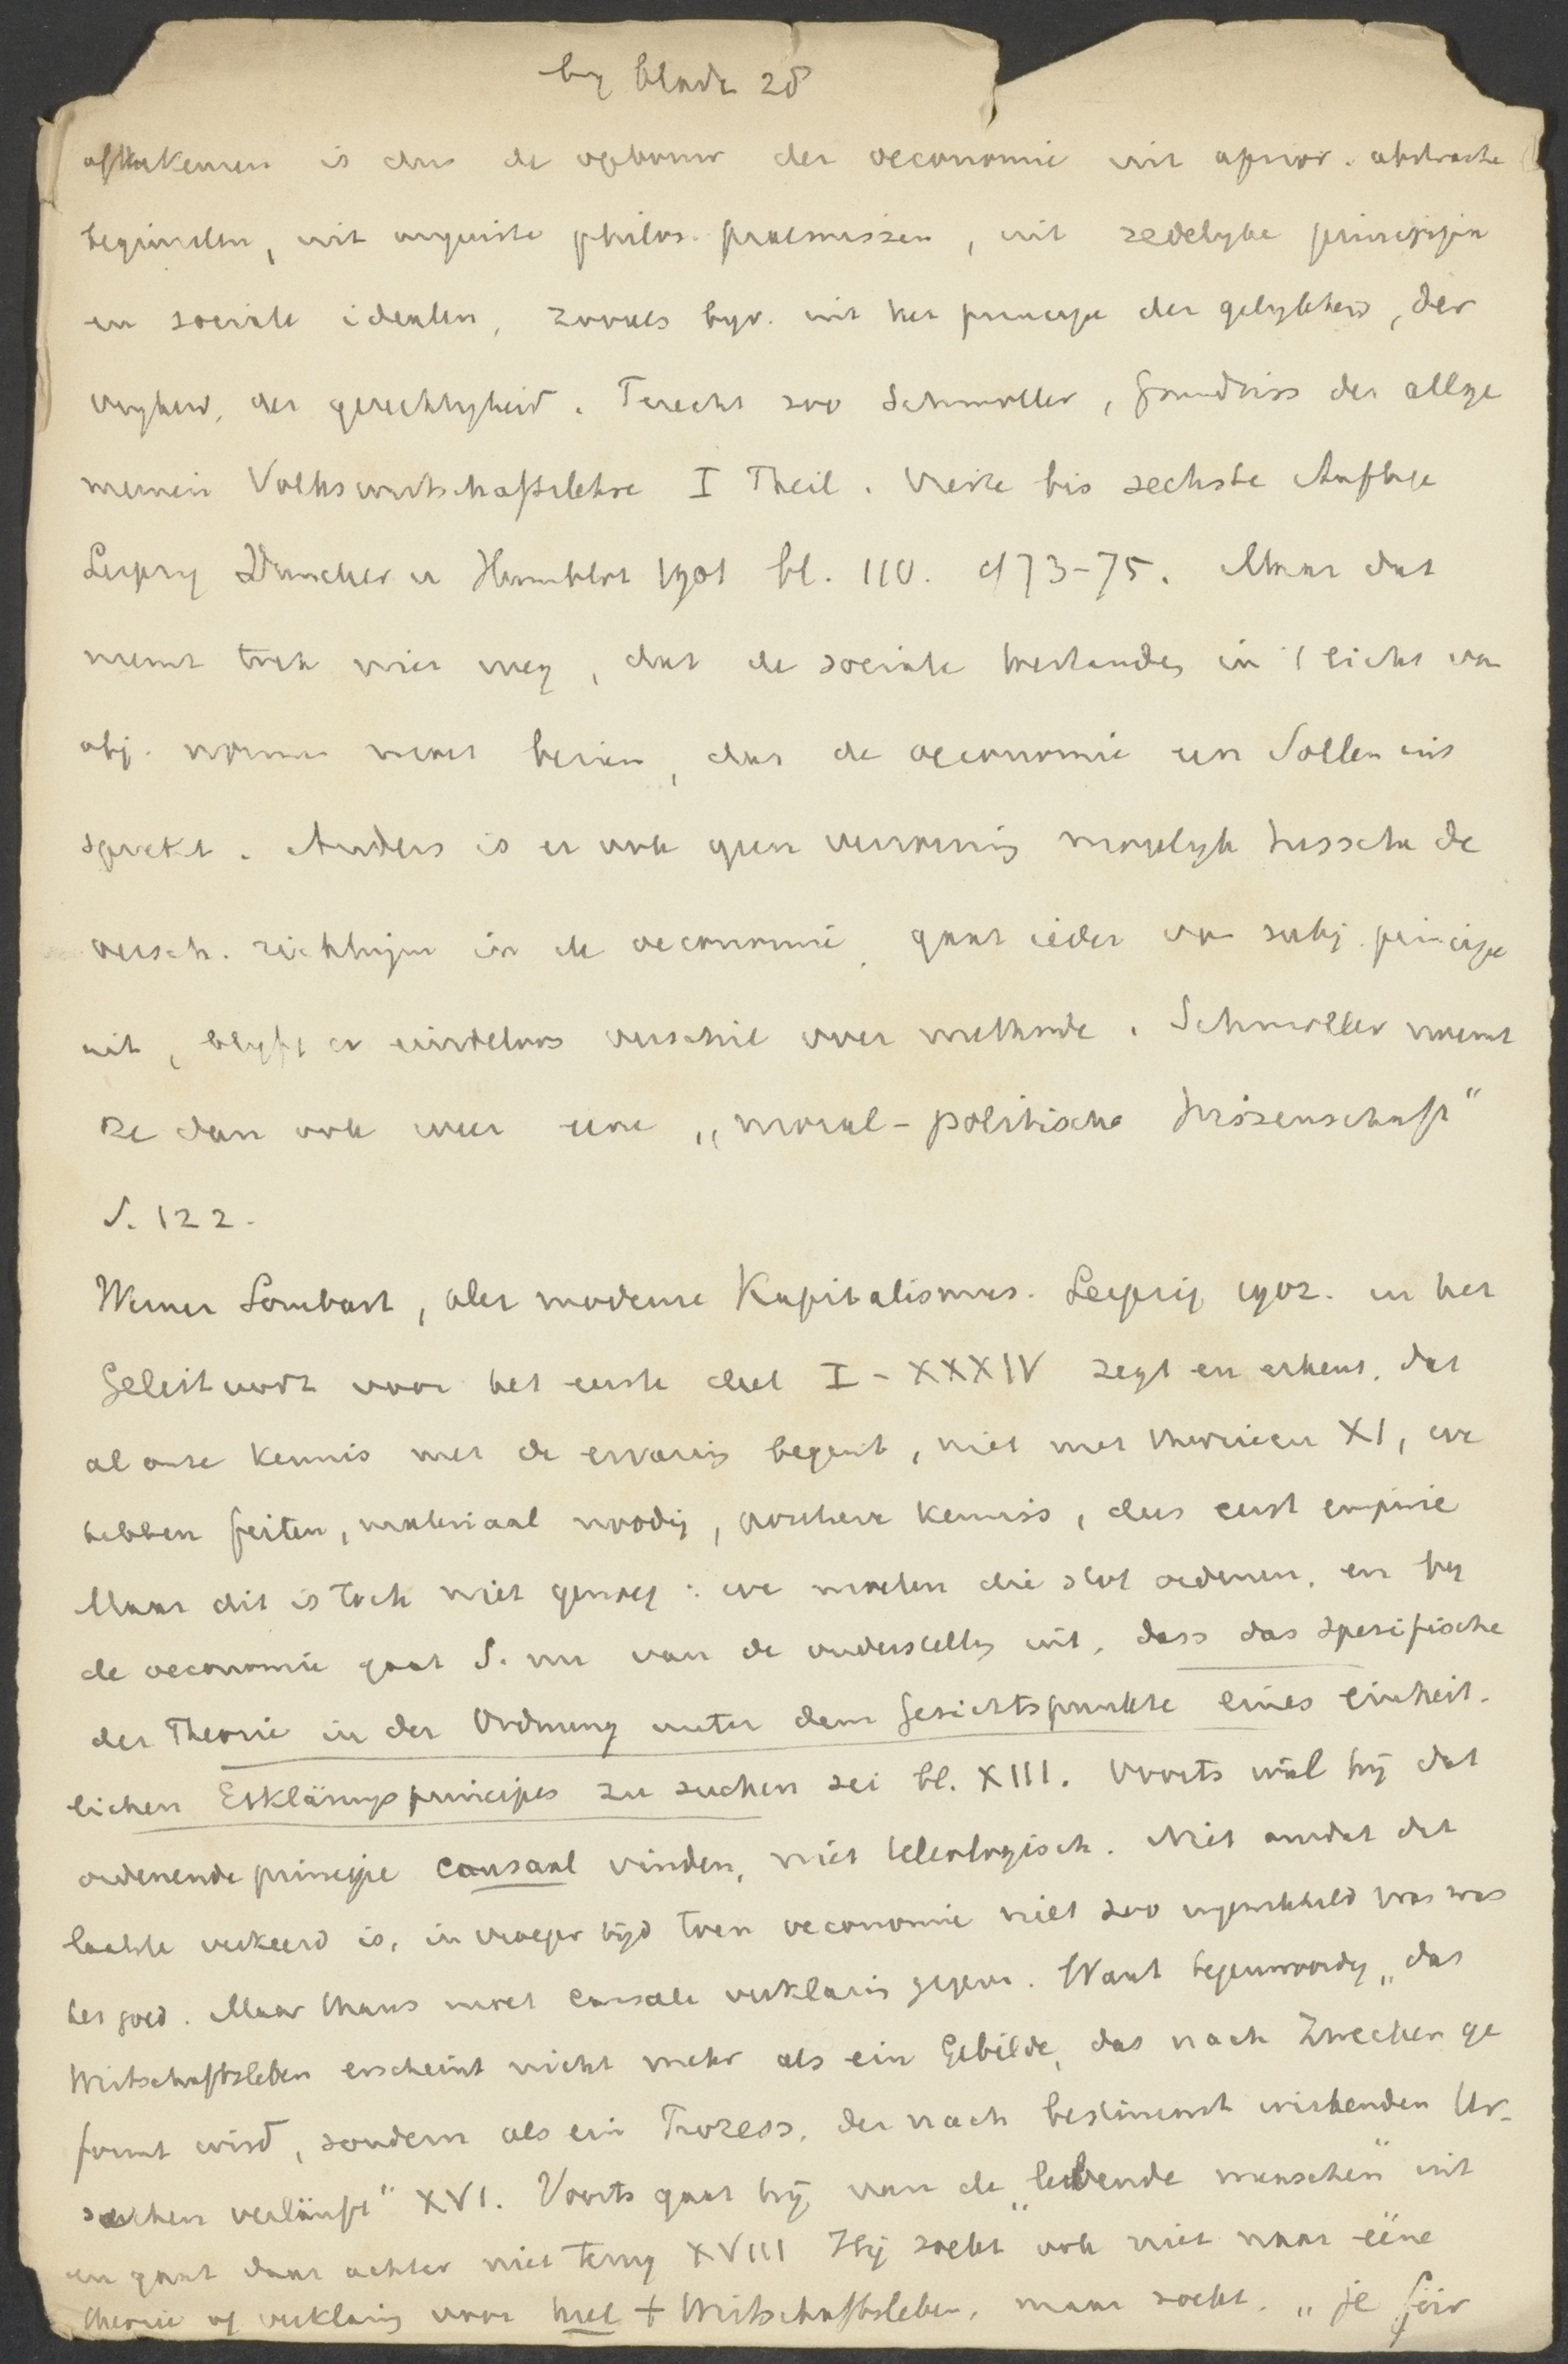 by bladz 28
af te keuren is dus de opbouw der oeconomie uit aprior. abstracte
beginselen, uit onjuiste philos. praemissen, uit zedelyke principien
en sociale idealen, zooals byv. uit het principe der gelykheid, der
vryheid, der gerechtigheid. Terecht zoo Schmoller, Grundriss der allge
meinen Volkswirtschaftslehre I Theil. Vierte bis sechste Auflage
Leipzig Duncker u Humblot 1901 bl. 110. cf 73-75. Maar dat
neemt toch niet weg, dat de sociale toestanden in 't licht van
obj. normen moet bezien, dat de oeconomie een Sollen uit
spreekt. Anders is er ook geen verzoening mogelyk tusschen de
versch. richtingen in de oeconomie, gaat ieder van subj. principe
uit, blyft er eindeloos verschil over methode. Schmoller noemt
ze dan ook weer eene „moral-politische Wissenschaft"
S. 122.
Werner Sombart, der moderne Kapitalismus. Leipzig 1902. in het
Geleitwort voor het eerste deel I-XXXIV zegt en erkent, dat
al onze kennis met de ervaring begint, niet met theorieen XI, we
hebben feiten, materiaal noodig, kennis, dus eerst empirie
Maar dit is toch niet genoeg: we moeten die stof ordenen, en by
de oeconomie gaat S. nu van de onderstellg uit, dass das spezifische
der Theorie in der Ordnung unter dem Gesichtspunkte eines einheit-
lichen Erklärungsprincipes zu suchen sei bl. XIII. Voorts wil hij dat
ordenende principe causaal vinden, niet teleologisch. Niet omdat dit
laatste verkeerd is, in vroeger tijd toen oeconomie niet zoo ingewikkeld was was
het goed. Maar thans moet causale verklaring gegeven. Want tegenwoordig „das
Wirtschaftsleben erscheint nicht mehr als ein Gebilde, das nach Zwecken ge
formt wird, sondern als ein Prozess, der nach bestimmt wirkenden Ur-
sachen verläuft" XVI. Voorts gaat hij van de „lebende menschen" uit
en gaat daar achter niet terug XVIII Hij zoekt ook niet naar ééne
theorie of verklaring voor heel + Wirtschaftsleben, maar zoekt „je für